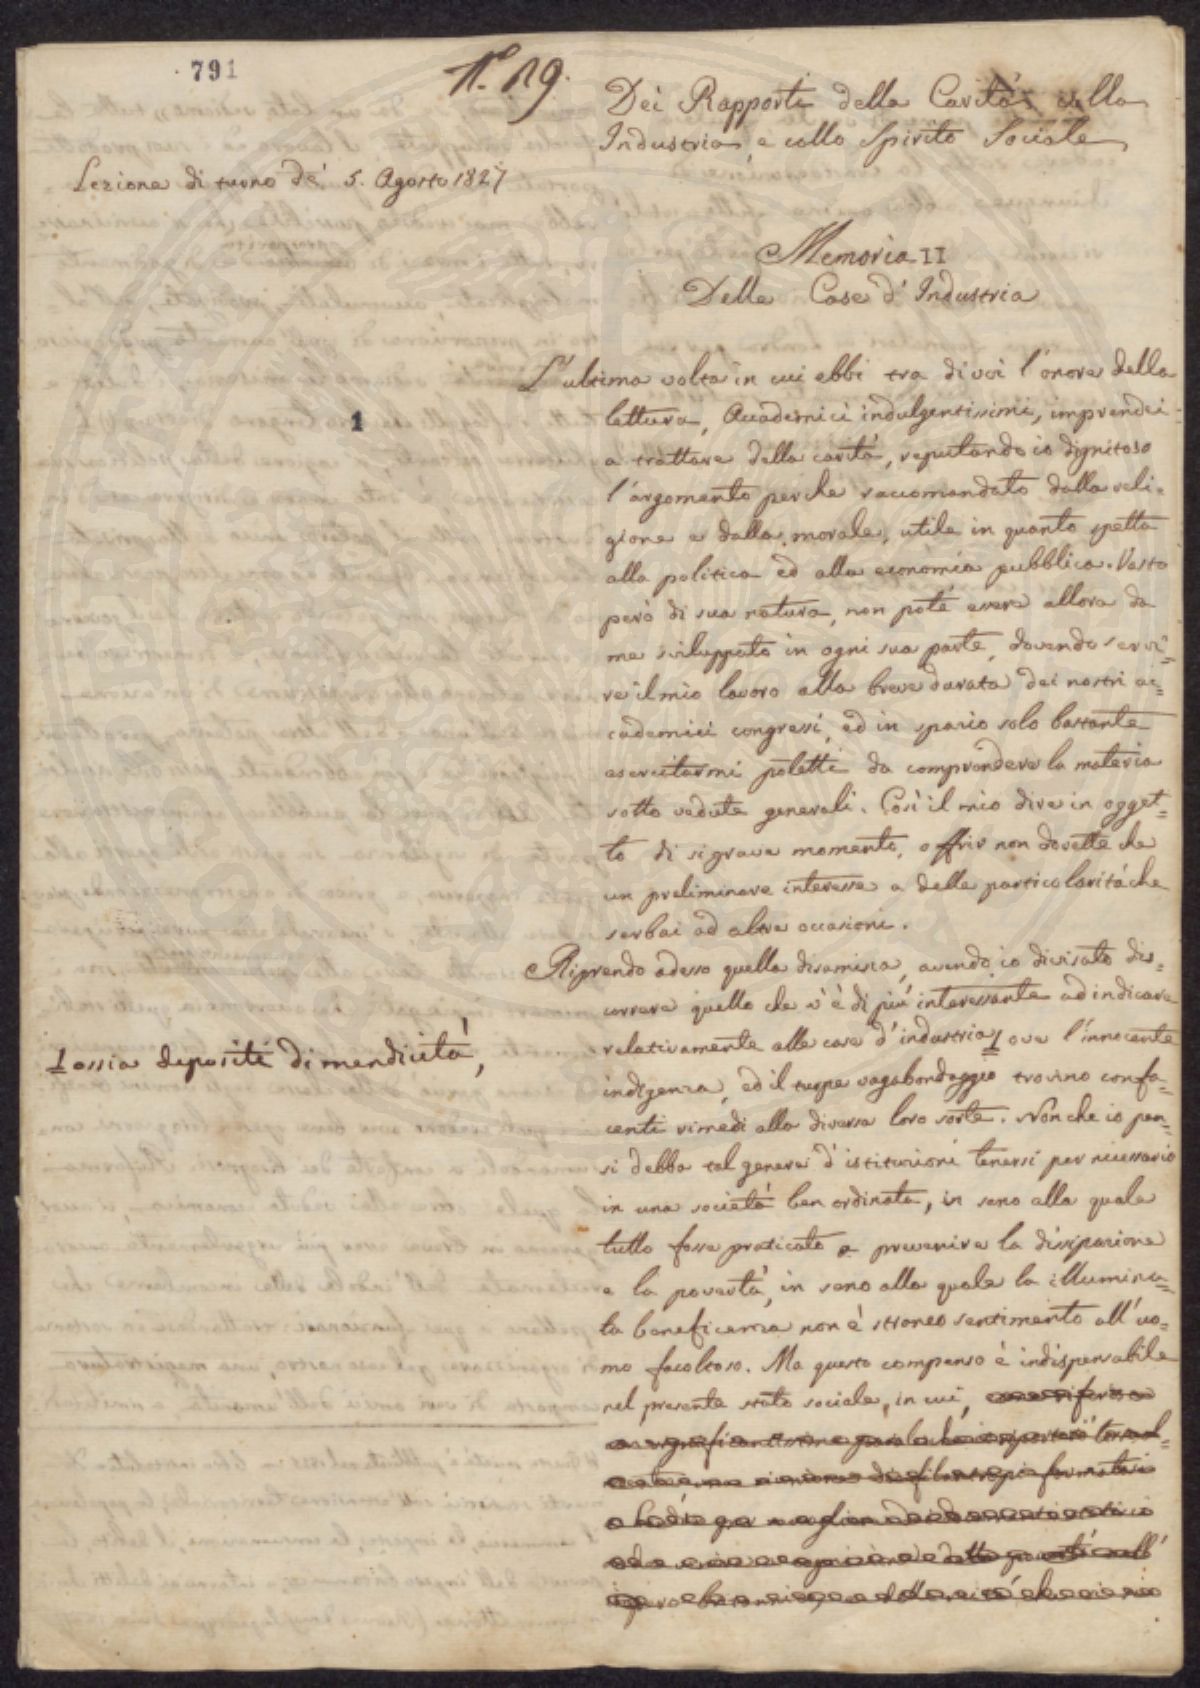 791
N.º 19.
Dei Rapporti della Carità colla
Industria, e collo Spirito Sociale
Lezione di turno de' 5. Agosto 1827
Memoria II
Delle Case d'Industria
L'ultima volta in cui ebbi tra di voi l'onore della
lettura, Accademici indulgentissimi, imprendei
a trattare della carità, reputando io dignitoso
l'argomento perche raccomandato dalla reli-
gione e dalla morale, utile in quanto spetta
alla politica ed alla economia pubblica. Vasto
però di sua natura, non poté essere allora da
me sviluppato in ogni sua parte, dovendo servi=
re il mio lavoro alla breve durata dei nostri ac=
cademici congressi, ed in spazio solo bastante
esercitarmi potetti da comprendere la materia
sotto vedute generali. Così il mio dire in ogget=
to di sì grave momento, offrir non dovette che
un preliminare interesse a delle particolarità che
serbai ad altre occasioni.
Riprendo adesso quella disamina, avendo io divisato dis=
correre quello che v'è di più interessante ad indicare
relativamente alle case d'industria 1 ove l'innocente
1 ossia depositi di mendicità,
indigenza, ed il turpe vagabondaggio trovino confa=
centi rimedi alla diversa loro sorte. Non che io pen=
si debba tal genere d'istituzioni tenersi per necessario
in una società ben ordinata, in seno alla quale
tutto fosse praticato a prevenire la dissipazione
e la povertà, in seno alla quale la illumina=
ta beneficenza non è straneo sentimento all'uo=
mo facoltoso. Ma questo compenso è indispensabile
nel presente stato sociale, in cui,
1